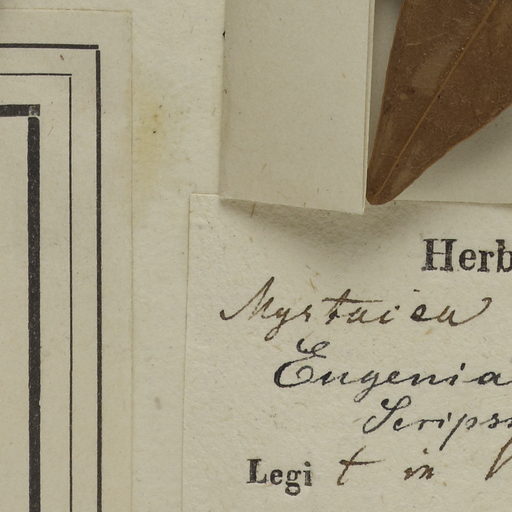 Herb
Myrtacea
Eugenia
Scrips
Legi t in